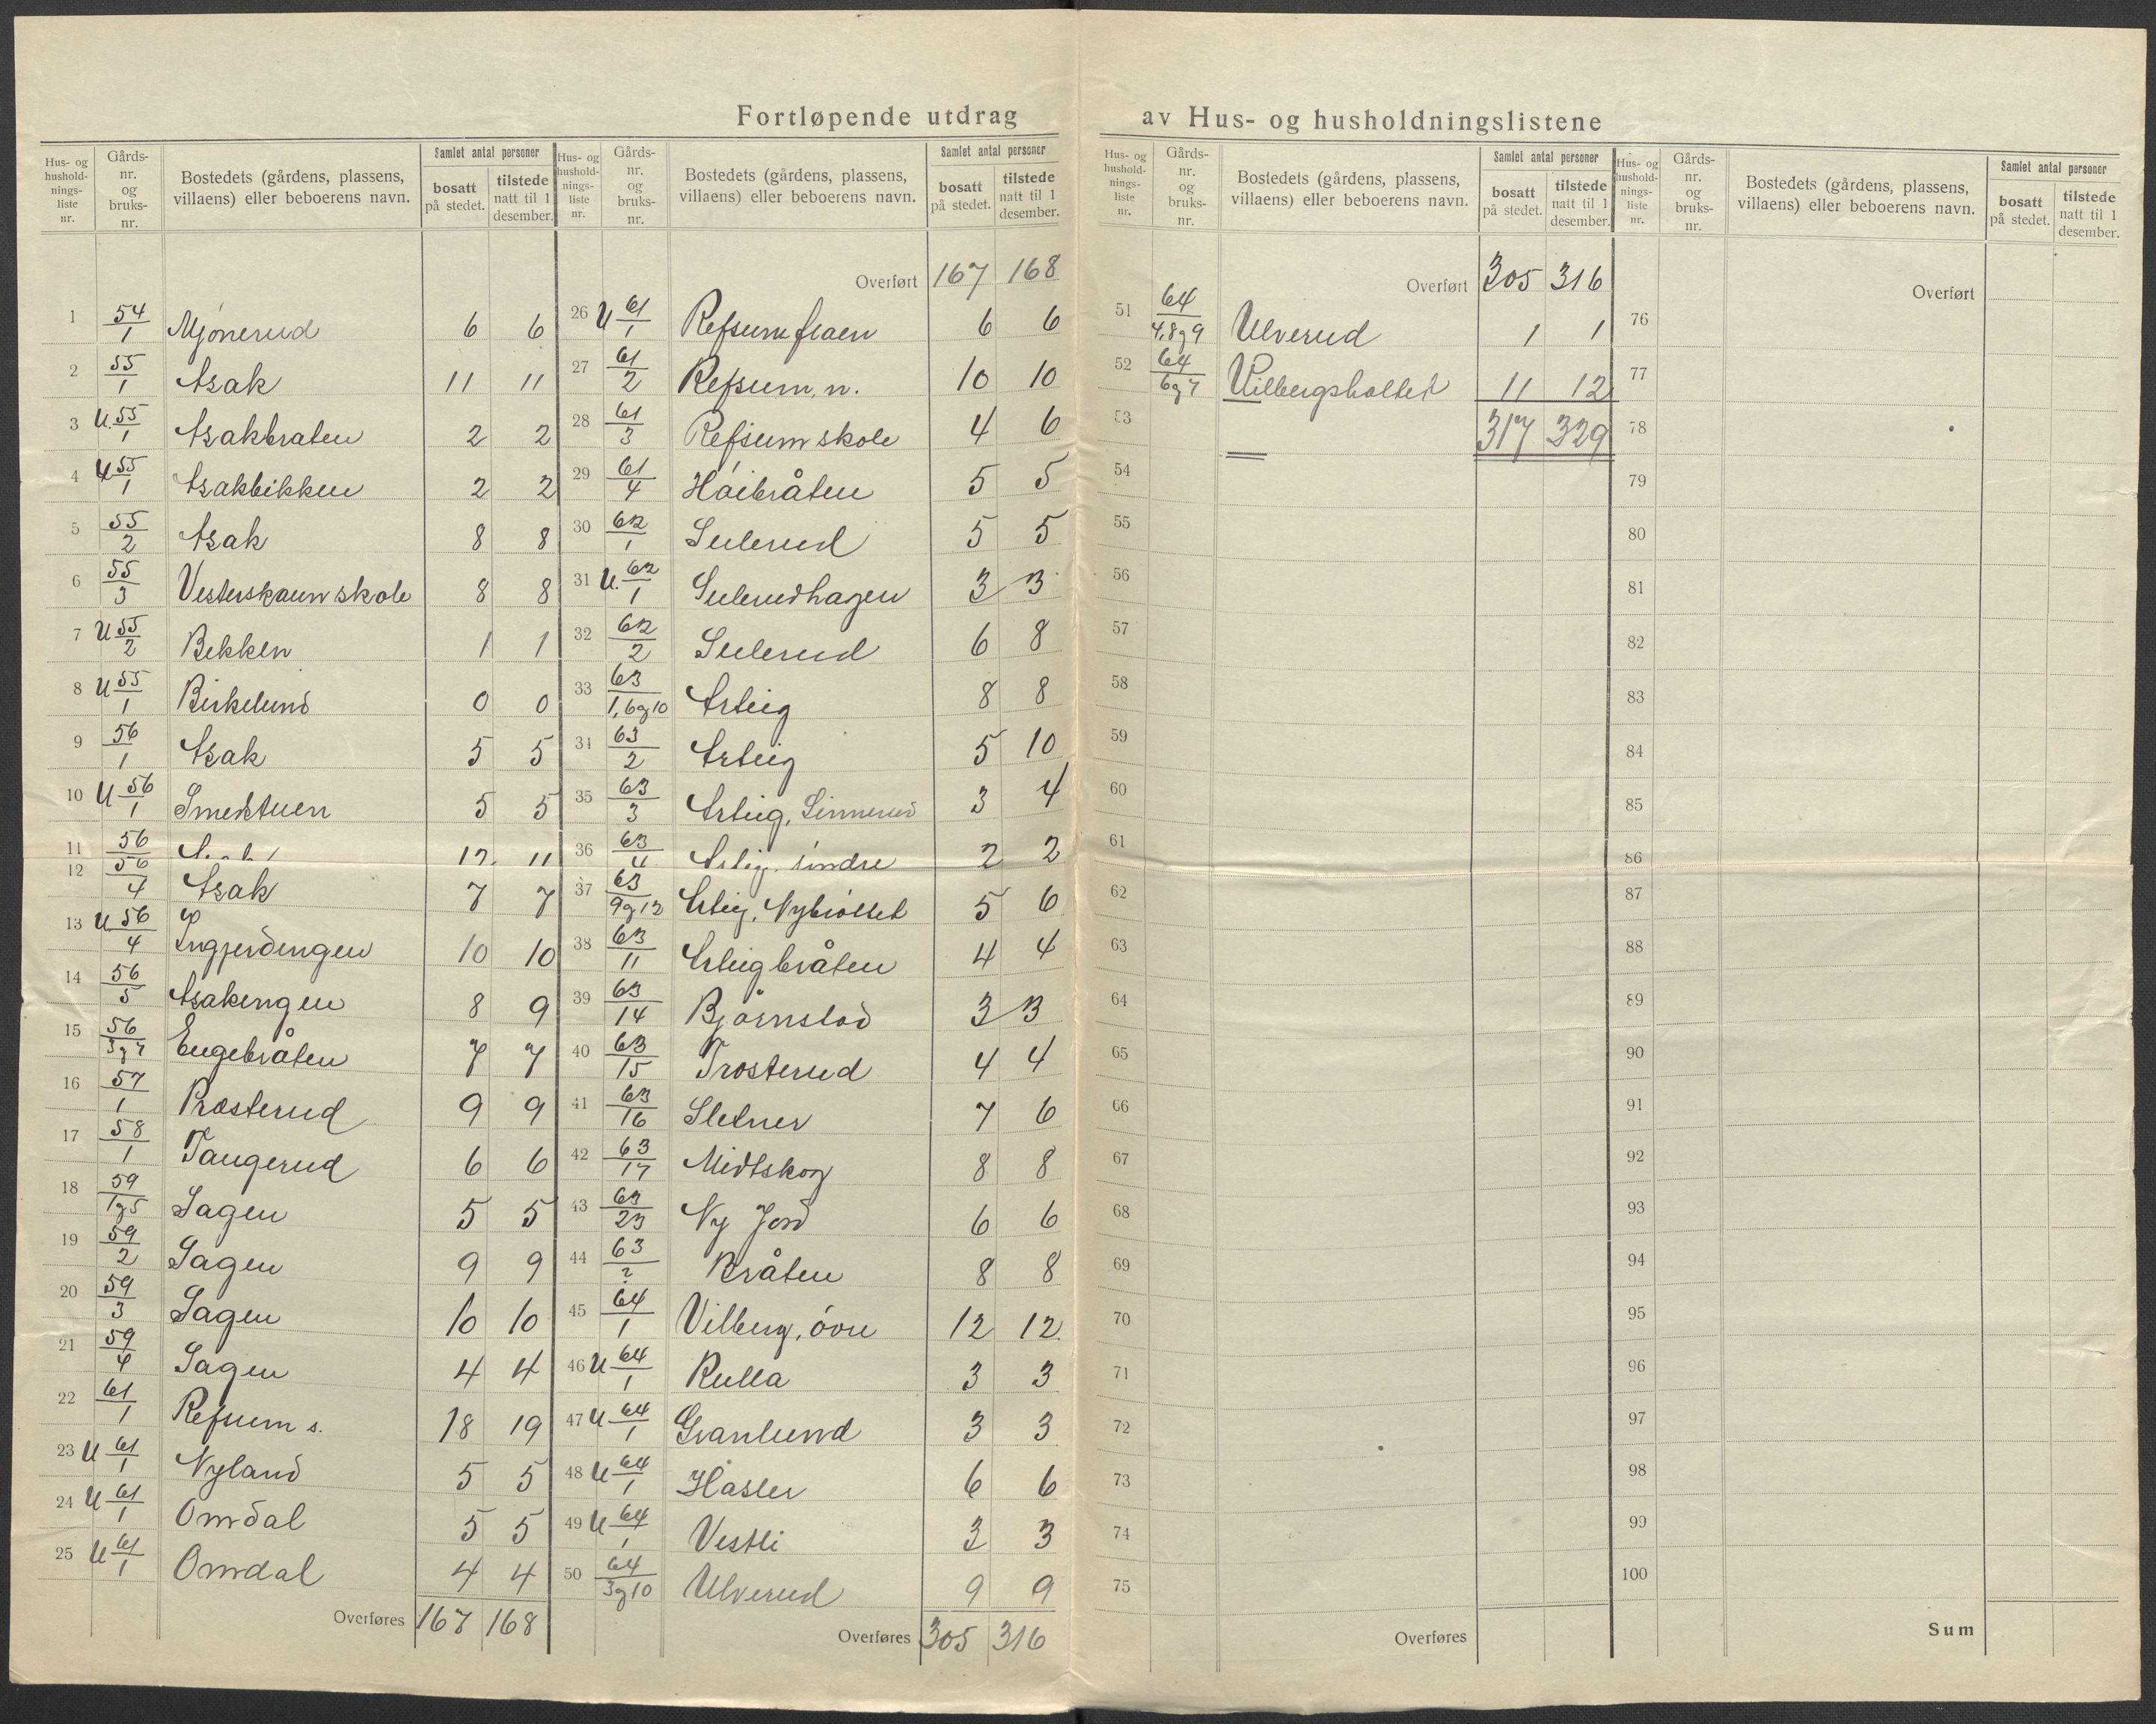 Fortløpende utdrag av Hus- og husholdningslistene
Hus- og husholdnings-liste nr. | Gårds-nr. og bruks-nr. | Bostedets (gårdens, plassens, villaens) eller beboerens navn. | Samlet antal personer | bosatt på stedet. | tilstede natt til 1 desember.
1 54/1 Mjønerud 6 6
2 55/1 Asak 11 11
3 U. 55/1 Asakbraten 2 2
4 U 55/1 Asakbikken 2 2
5 55/2 Asak 8 8
6 55/3 Vesterskaun skole 8 8
7 U 55/2 Bekken 1 1
8 U 55/1 Birkelund 0 0
9 56/1 Asak 5 5
10 U 56/1 Smedstuen 5 5
11 56 12 11
12 56/4 Asak 7 7
13 U. 56/4 Ingjerdengen 10 10
14 56/5 Asakengen 8 9
15 56/3og7 Engebråten 7 7
16 57/1 Præsterud 9 9
17 58/1 Taugerud 6 6
18 59/1og5 Sagen 5 5
19 59/2 Sagen 9 9
20 59/3 Sagen 10 10
21 59/4 Sagen 4 4
22 61/1 Refsum s. 18 19
23 U 61/1 Nyland 5 5
24 U 61/1 Omdal 5 5
25 U 61/1 Omdal 4 4
Overføres 167 168
Hus- og husholdnings-liste nr. | Gårds-nr. og bruks-nr. | Bostedets (gårdens, plassens, villaens) eller beboerens navn. | Samlet antal personer | bosatt på stedet. | tilstede natt til 1 desember.
Overført 167 168
26 U 61/1 Refsum 6 6
27 61/2 Refsum, n. 10 10
28 61/3 Refsum skole 4 6
29 61/4 Høibråten 5 5
30 62/1 Sulerud 5 5
31 U. 62/1 Sulerudhagen 3 3
32 62/2 Sulerud 6 8
33 63/1,6og10 Arteig 8 8
34 63/2 Arteig 5 10
35 63/3 Arteig, Linnerud 3 4
36 63/4 Arteig, søndre 2 2
37 63/9og12 Arteig, Nybrottet 5 6
38 63/11 Arteigbråten 4 4
39 63/14 Bjørnstad 3 3
40 63/15 Trosterud 4 4
41 63/16 Sletner 7 6
42 63/17 Midtskog 8 8
43 63/23 Ny Jord 6 6
44 63/? Bråten 8 8
45 64/1 Vilberg, øvre 12 12
46 U 64/1 Rulla 3 3
47 U 64/1 Granlund 3 3
48 U 64/1 Hasler 6 6
49 U 64/1 Vestli 3 3
50 64/3og10 Ulverud 9 9
Overføres 305 316
Hus- og husholdnings-liste nr. | Gårds-nr. og bruks-nr. | Bostedets (gårdens, plassens, villaens) eller beboerens navn. | Samlet antal personer | bosatt på stedet. | tilstede natt til 1 desember.
Overført 305 316
51 64/4,8og9 Ulverud 1 1
52 64/6og7 Vilbergsholtet 11 12
53 317 329
54
55
56
57
58
59
60
61
62
63
64
65
66
67
68
69
70
71
72
73
74
75
Overføres
Hus- og husholdnings-liste nr. | Gårds-nr. og bruks-nr. | Bostedets (gårdens, plassens, villaens) eller beboerens navn. | Samlet antal personer | bosatt på stedet. | tilstede natt til 1 desember.
Overført
76
77
78
79
80
81
82
83
84
85
86
87
88
89
90
91
92
93
94
95
96
97
98
99
100
Sum